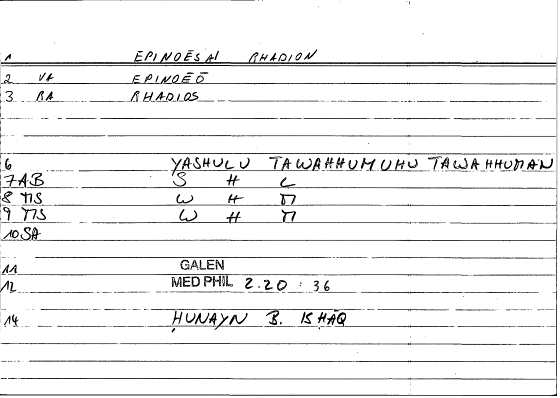 1 EPINOĒSAI RHADION
2 VA EPINOEŌ
3 RA RHADIOS
6 YASHULU TAWAHHUMUHU TAWAHHUMAN
7 AB S H L
8 MS W H M
9 MS W H M
10 SA
11 GALEN
12 MED PHIL 2.20 : 36
14 ḤUNAYN B. ISḤĀQ